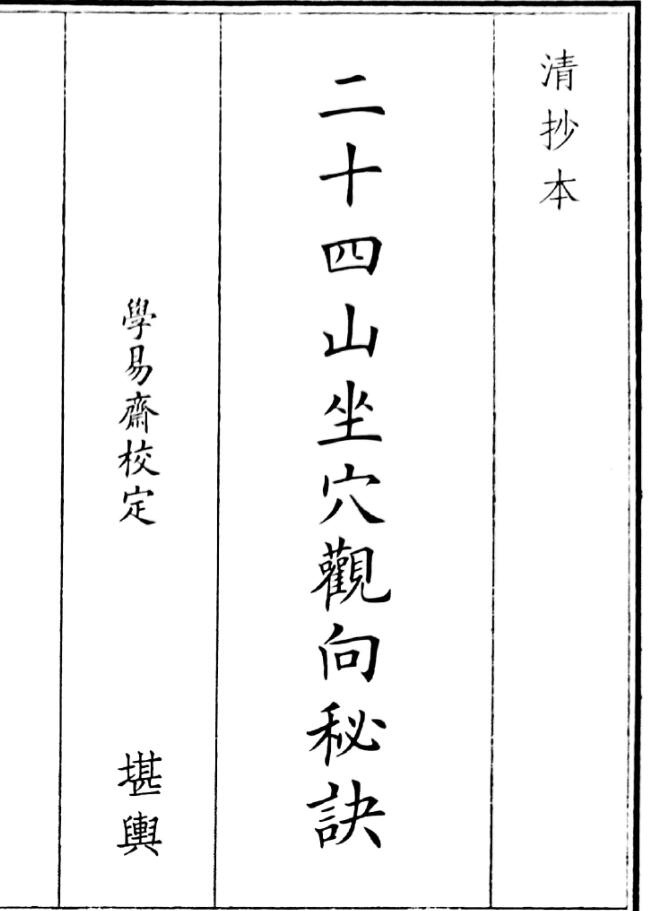 清抄本
二十四山坐穴觀向秘訣
學易齋校定
堪輿